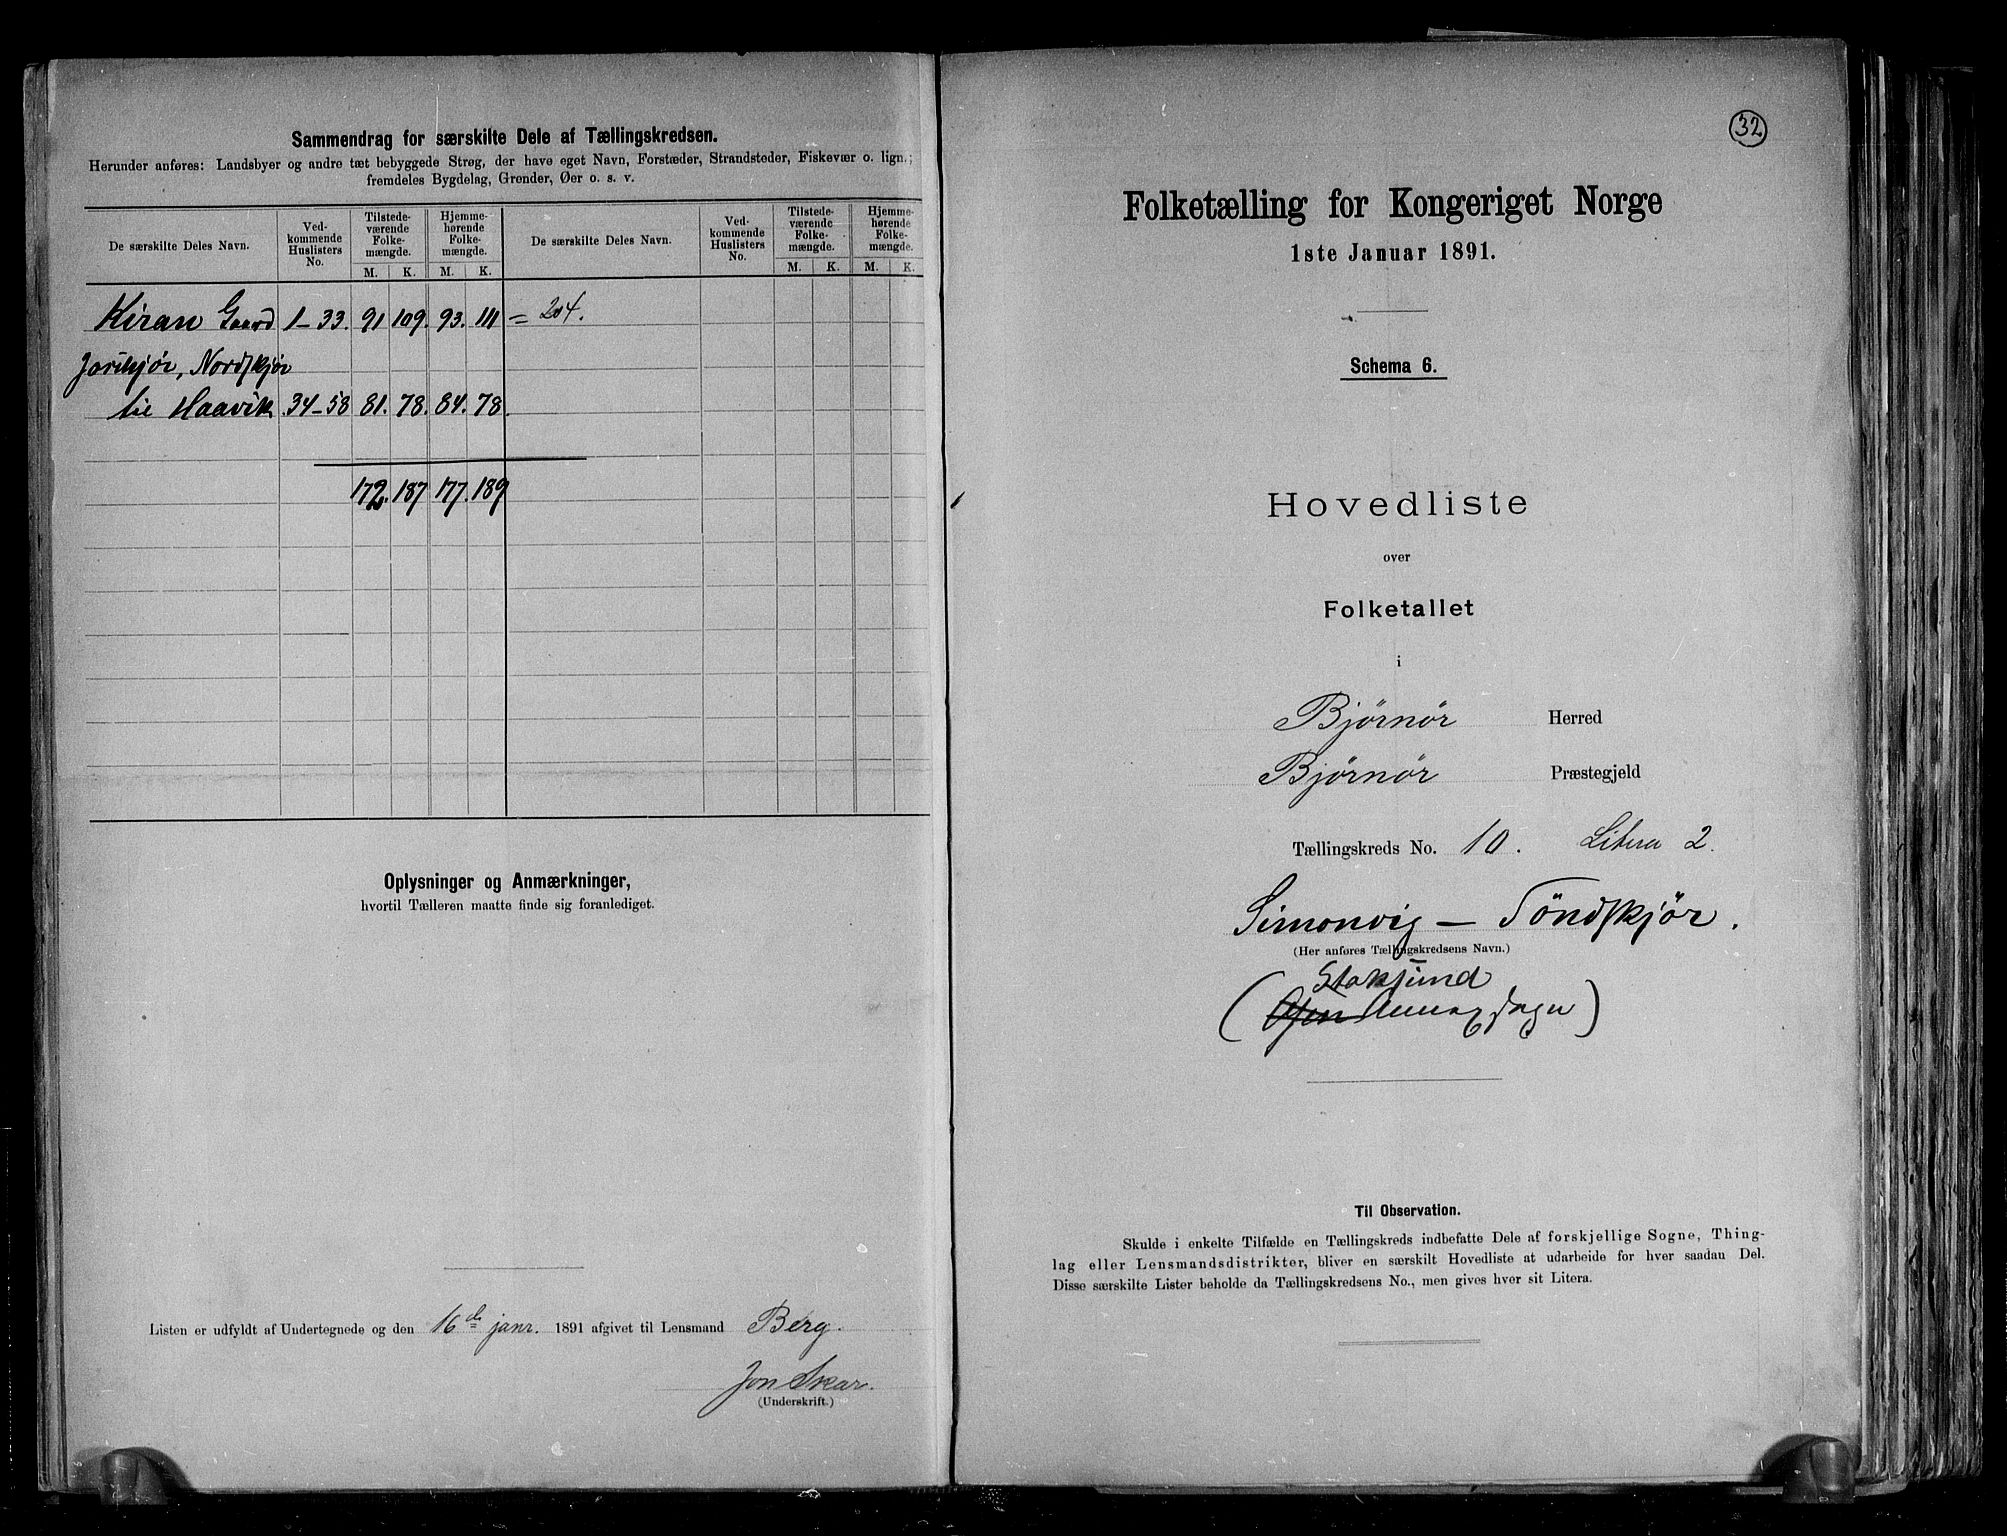 Sammendrag for særskilte Dele af Tællingskredsen.
Herunder anføres: Landsbyer og andre tæt bebyggede Strøg, der have eget Navn, Forstæder, Strandsteder, Fiskevær o. lign.;
fremdeles Bygdelag, Grender, Øer o. s. v.
De særskilte Deles Navn. Ved-kommende Huslisters No. Tilstede-værende Folke-mængde. Hjemme-hørende Folke-mængde. De særskilte Deles Navn. Ved-kommende Huslisters No. Tilstede-værende Folke-mængde. Hjemme-hørende Folke-mængde.
M. K. M. K. M. K. M. K.
Kiran Gaard 1-33. 91 109. 93. 111 = 204.
Nordskjør
til Haavik 34-58 81. 78. 84. 78.
172. 187 177. 189
Oplysninger og Anmærkninger,
hvortil Tælleren maatte finde sig foranlediget.
Listen er udfyldt af Undertegnede og den 16de janr. 1891 afgivet til Lensmand Berg.
Jon Skar.
(Underskrift.)
32
Folketælling for Kongeriget Norge
1ste Januar 1891.
Schema 6.
Hovedliste
over
Folketallet
i
Bjørnør Herred
Bjørnør Præstegjeld
Tællingskreds No. 10. Litera 2.
Simonvig — Töndskjør.
(Her anføres Tællingskredsens Navn.)
Stoksund
Til Observation.
Skulde i enkelte Tilfælde en Tællingskreds indbefatte Dele af forskjellige Sogne, Thing-
lag eller Lensmandsdistrikter, bliver en særskilt Hovedliste at udarbeide for hver saadan Del.
Disse særskilte Lister beholde da Tællingskredsens No., men gives hver sit Litera.